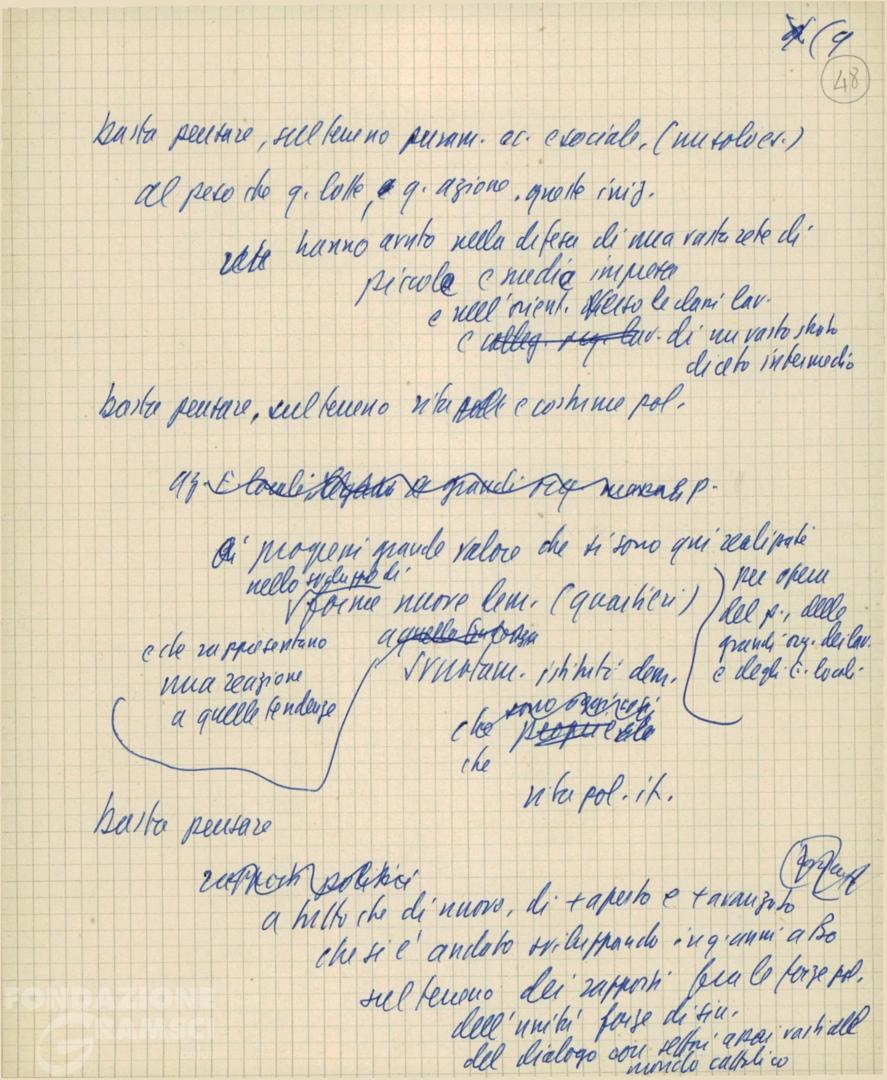 (9
48
basta pensare, sul terreno puram. ec. e sociale, (non solo ec.)
al peso che q. lotte, q. azione, queste iniz.
hanno avuto nella difesa di una vasta rete di
piccole e medie imprese
e nell'orient. verso le classi lav.
e colleg. lav. di un vasto strato
di ceto intermedio
basta pensare, sul terreno vita e costume pol.
ai progressi grande valore che si sono qui realizzati
nello sviluppo di
forme nuove dem. (quartieri)
per opera
del p., delle
grandi org. dei lav.
e degli e. locali.
e che rappresentano
una reazione
a quelle tendenze
a quelle
svuotam. istituti dem.
che sono oggi così
che
vita pol. it.
basta pensare
rapporti politici
a tutto che di nuovo, di + aperto e + avanzato
che si è andato sviluppando in q. anni a Bo
sul terreno dei rapporti fra le forze pol.
dell'unità forze di sin.
del dialogo con settori assai vasti del
mondo cattolico
FONDAZIONE
GRAMSCI